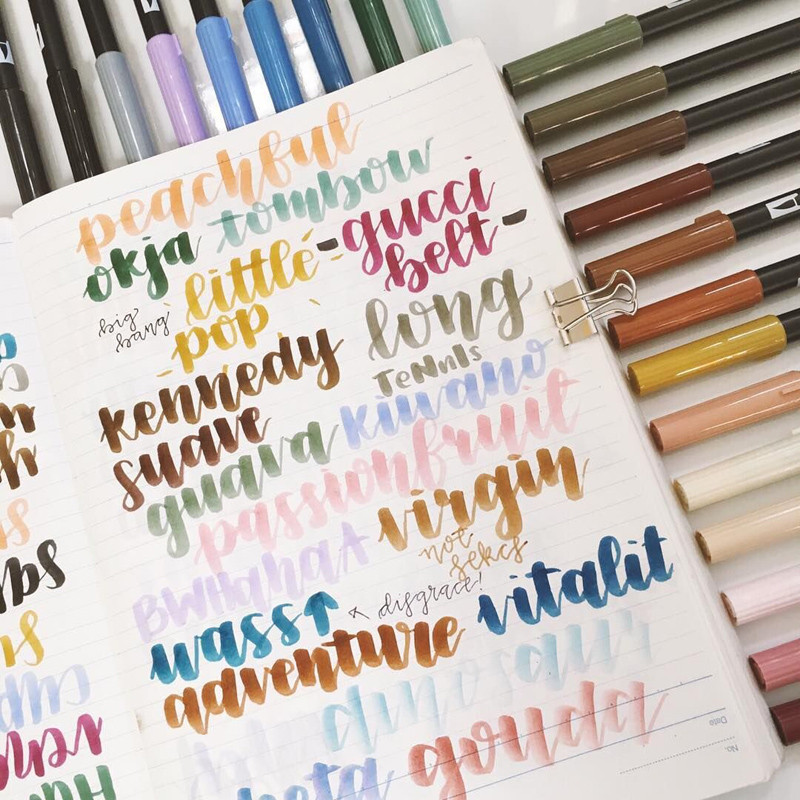 peachful
okja tombow
little gucci
belt
big
bang
pop
long
TeNnIs
kennedy
suave
guava kiwano
passionfruit
virgin
not
sekcs
BWHahaA
wass↑ ↖ disgrace! vitalit
adventure
dinosaur
gouda
No.
Date